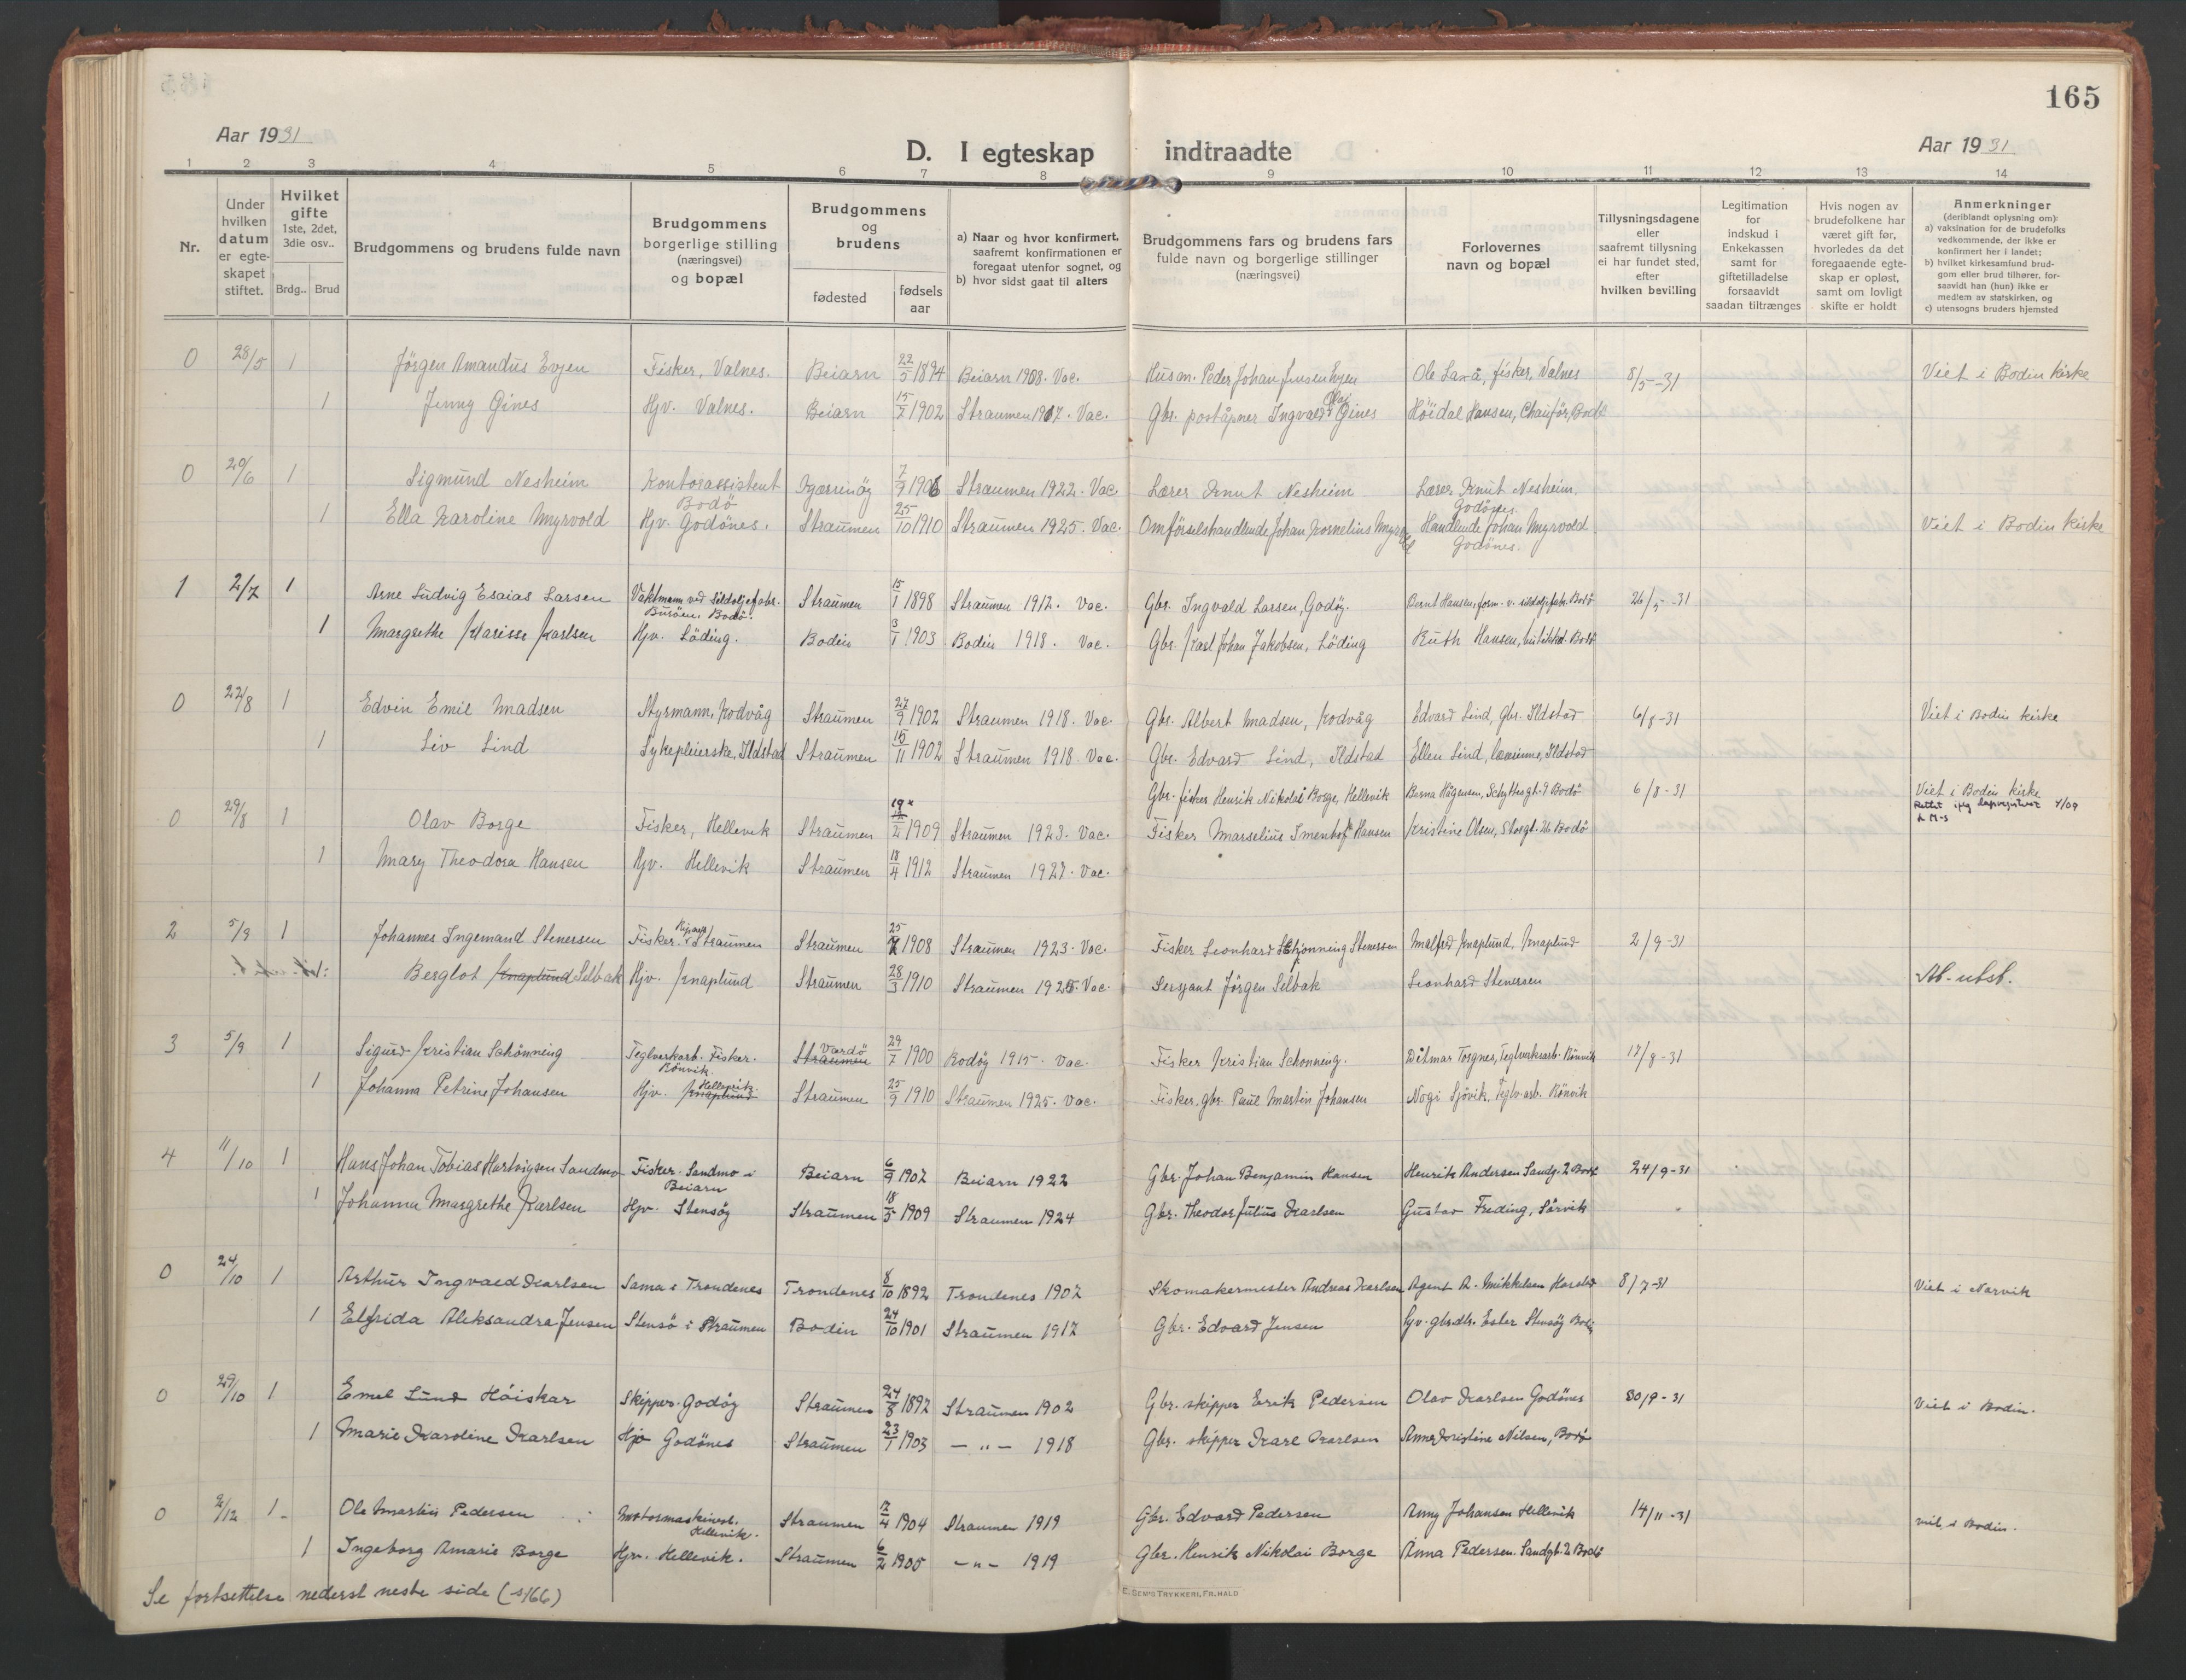 165
Aar 1931
D. I egteskap indtraadte
Aar 1931
1 2 3 4 5 6 7 8 9 10 11 12 13 14
Nr.
Under hvilken datum er egteskapet stiftet.
Hvilket gifte 1ste, 2det, 3die osv..
Brdg.. Brud
Brudgommens og brudens fulde navn
Brudgommens borgerlige stilling (næringsvei) og bopæl
Brudgommens og brudens
fødested
fødsels aar
a) Naar og hvor konfirmert, saafremt konfirmationen er foregaat utenfor sognet, og
b) hvor sidst gaat til alters
Brudgommens fars og brudens fars fulde navn og borgerlige stillinger (næringsvei)
Forlovernes navn og bopæl
Tillysningsdagene eller saafremt tillysning ei har fundet sted, efter hvilken bevilling
Legitimation for indskud i Enkekassen samt for giftetilladelse forsaavidt saadan tiltrænges
Hvis nogen av brudefolkene har været gift før, hvorledes da det foregaaende egteskap er opløst, samt om lovligt skifte er holdt
Anmerkninger
(deriblandt oplysning om):
a) vaksination for de brudefolks vedkommende, der ikke er konfirmert her i landet;
b) hvilket kirkesamfund brudgom eller brud tilhører, forsaavidt han (hun) ikke er medlem av statskirken, og
c) utensogns bruders hjemsted
0 28/5 1 Jörgen Amandus Evjen Fisker, Valnes. Beiarn 22/5 1894 Beiarn 1908. Vac. Husm. Peder Johan Jensen Evjen Ole Laxå, fisker, Valnes 8/5-31 Viet i Bodin kirke
1 Jenny Gines Hjv. Valnes. Beiarn 15/7 1902 Straumen 1917. Vac. Gbr. poståpner Ingvald Gines Höidal Hansen, Chauför, Bodö
0 20/6 1 Sigmund Nesheim Kontorassistent Bodö Kjærringöy 7/9 1906 Straumen 1922. Vac. Lærer Knut Nesheim Lærer Knut Nesheim, Godönes.
1 Ella Karoline Myrvold Hjv. Godönes. Straumen 25/10 1910 Straumen 1925. Vac. Omförselshandlende Johan Kornelius Myrvold Handlende Johan Myrvold Godönes. Viet i Bodin kirke
1 2/7 1 Arne Ludvig Esaias Larsen Vaktmann ved Sildoljefabr. Burøen. Bodö. Straumen 15/1 1898 Straumen 1912. Vac. Gbr. Ingvald Larsen, Godöy. Bernt Hansen, form. v. sildoljefabr. Bodö 26/5-31
1 Margrethe Klarisse Karlsen Hjv. Löding. Bodin 3/1 1903 Bodin 1918. Vac. Gbr. Karl Johan Jakobsen, Löding Ruth Hansen, Bodö
0 22/8 1 Edvin Emil Madsen Styrmann, Kodvåg Straumen 27/9 1902 Straumen 1918. Vac. Gbr. Albert Madsen, Kodvåg Edvard Lind, Gbr. Ildstad 6/8-31 Viet i Bodin kirke
1 Liv Lind Sykepleierske, Ildstad Straumen 15/11 1902 Straumen 1918. Vac. Gbr. Edvard Lind, Ildstad Ellen Lind, lærerinne, Ildstad
Gbr. fisker Henrik Nikolai Borge, Hellevik Berna Hågensen, Schyttesgt. 9 Bodö 6/8-31 Viet i Bodin kirke
0 29/8 1 Olav Borge Fisker, Hellevik Straumen 19/2 1909 Straumen 1923. Vac. Fisker Marselius Imenhof Hansen Kristine Olsen, Storgt. 26 Bodö
1 Mary Theodora Hansen Hjv. Hellevik Straumen 18/4 1912 Straumen 1927. Vac.
2 5/9 1 Johannes Ingemand Stenersen Fisker. Straumen Straumen 25/7 1908 Straumen 1923. Vac. Fisker Leonhard Schjonning Stenersen Malfred Knaplund, Knaplund 2/9-31
Berglot Knaplund Selbak Hjv. Knaplund Straumen 28/3 1910 Straumen 1925. Vac. Sersjant Jörgen Selbak Leonhard Stenersen Ab-utst.
3 5/9 1 Sigurd Kristian Schönning Teglverkarb. Fisker. Rönvik. Straumen Vardö 29/7 1900 Bodöy 1915. Vac. Fisker Kristian Schonning. Ditmar Torgnes, Teglverksarb. Rönvik 17/8-31
1 Johanna Petrine Johansen Hjv. Knaplund Hellevik. Straumen 25/9 1910 Straumen 1925. Vac. Fisker, gbr. Paul Martin Johansen Nogi Sjövik, Teglv.arb. Rönvik
4 11/10 1 Hans Johan Tobias Hartvigsen Sandmo Fisker. Sandmo i Beiarn Beiarn 6/9 1902 Beiarn 1922 Gbr. Johan Benjamin Hansen Henrik Andersen Sandg. 2 Bodö 24/9-31
1 Johanna Margrethe Karlsen Hjv. Stensöy Straumen 18/5 1909 Straumen 1924 Gbr. Theodor Julius Karlsen Gustav Freding, Sörvik
0 24/10 1 Arthur Ingvald Karlsen Sama i Trondenes Trondenes 8/10 1892 Trondenes 1907 Skomakermester Andreas Karlsen Agent A. Mikkelsen Harstad 8/7-31 Viet i Narvik
1 Elfrida Aleksandra Jensen Stensö i Straumen Bodin 24/10 1901 Straumen 1917 Gbr. Edvard Jensen Ester Stensöy Bodin
0 29/10 1 Emel Lund Höiskar Skipper. Godöy Straumen 24/8 1892 Straumen 1902 Gbr. skipper Erik Pedersen Olav Karlsen Godönes 30/9-31 Viet i Bodin.
1 Marie Karoline Karlsen Hjv Godönes Straumen 23/1 1903 — „ — 1918 Gbr. skipper Karl Karlsen Anne Kristine Nilsen, Bodö
0 2/12 1 Ole Martin Pedersen Motormaskinpas. Hellevik. Straumen 17/4 1904 Straumen 1919 Gbr. Edvard Pedersen Anny Johansen Hellevik 14/11-31 viet i Bodin.
1 Ingeborg Amarie Borge Hjv. Hellevik. Straumen 6/2 1905 — „ — 1919 Gbr. Henrik Nikolai Borge Anna Pedersen. Sandgt. 2 Bodö
Se fortsettelse nederst neste side (s166)
E. SEM'S TRYKKERI, FR.HALD